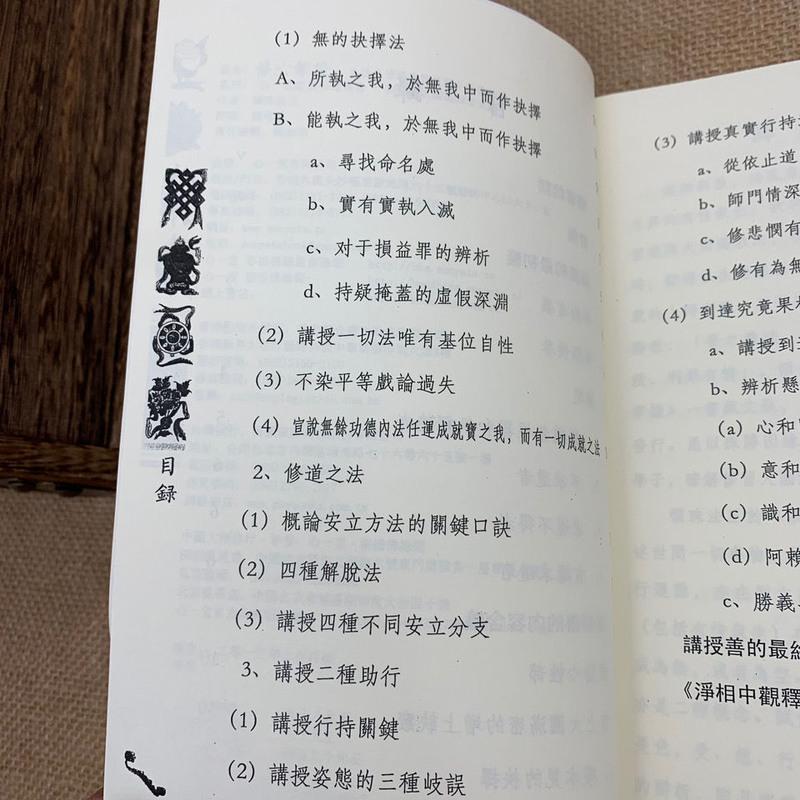 (1) 無的抉擇法
A、所執之我，於無我中而作抉擇
B、能執之我，於無我中而作抉擇
a、尋找命名處
b、實有實執入滅
c、对于損益罪的辨析
d、持疑掩蓋的虛假深淵
(2) 講授一切法唯有基位自性
(3) 不染平等戲論過失
(4) 宣說無餘功德內法任運成就寶之我，而有一切成就之法
2、修道之法
(1) 概論安立方法的關鍵口訣
(2) 四種解脫法
(3) 講授四種不同安立分支
3、講授二種助行
(1) 講授行持關鍵
(2) 講授姿態的三種歧誤
目錄
(3) 講授真實行持
a、從依止道
b、師門情深
c、修悲憫有
d、修有為無
(4) 到達究竟果
a、講授到
b、辨析懸
(a) 心和
(b) 意和
(c) 識和
(d) 阿賴
c、勝義
講授善的最
《淨相中觀釋